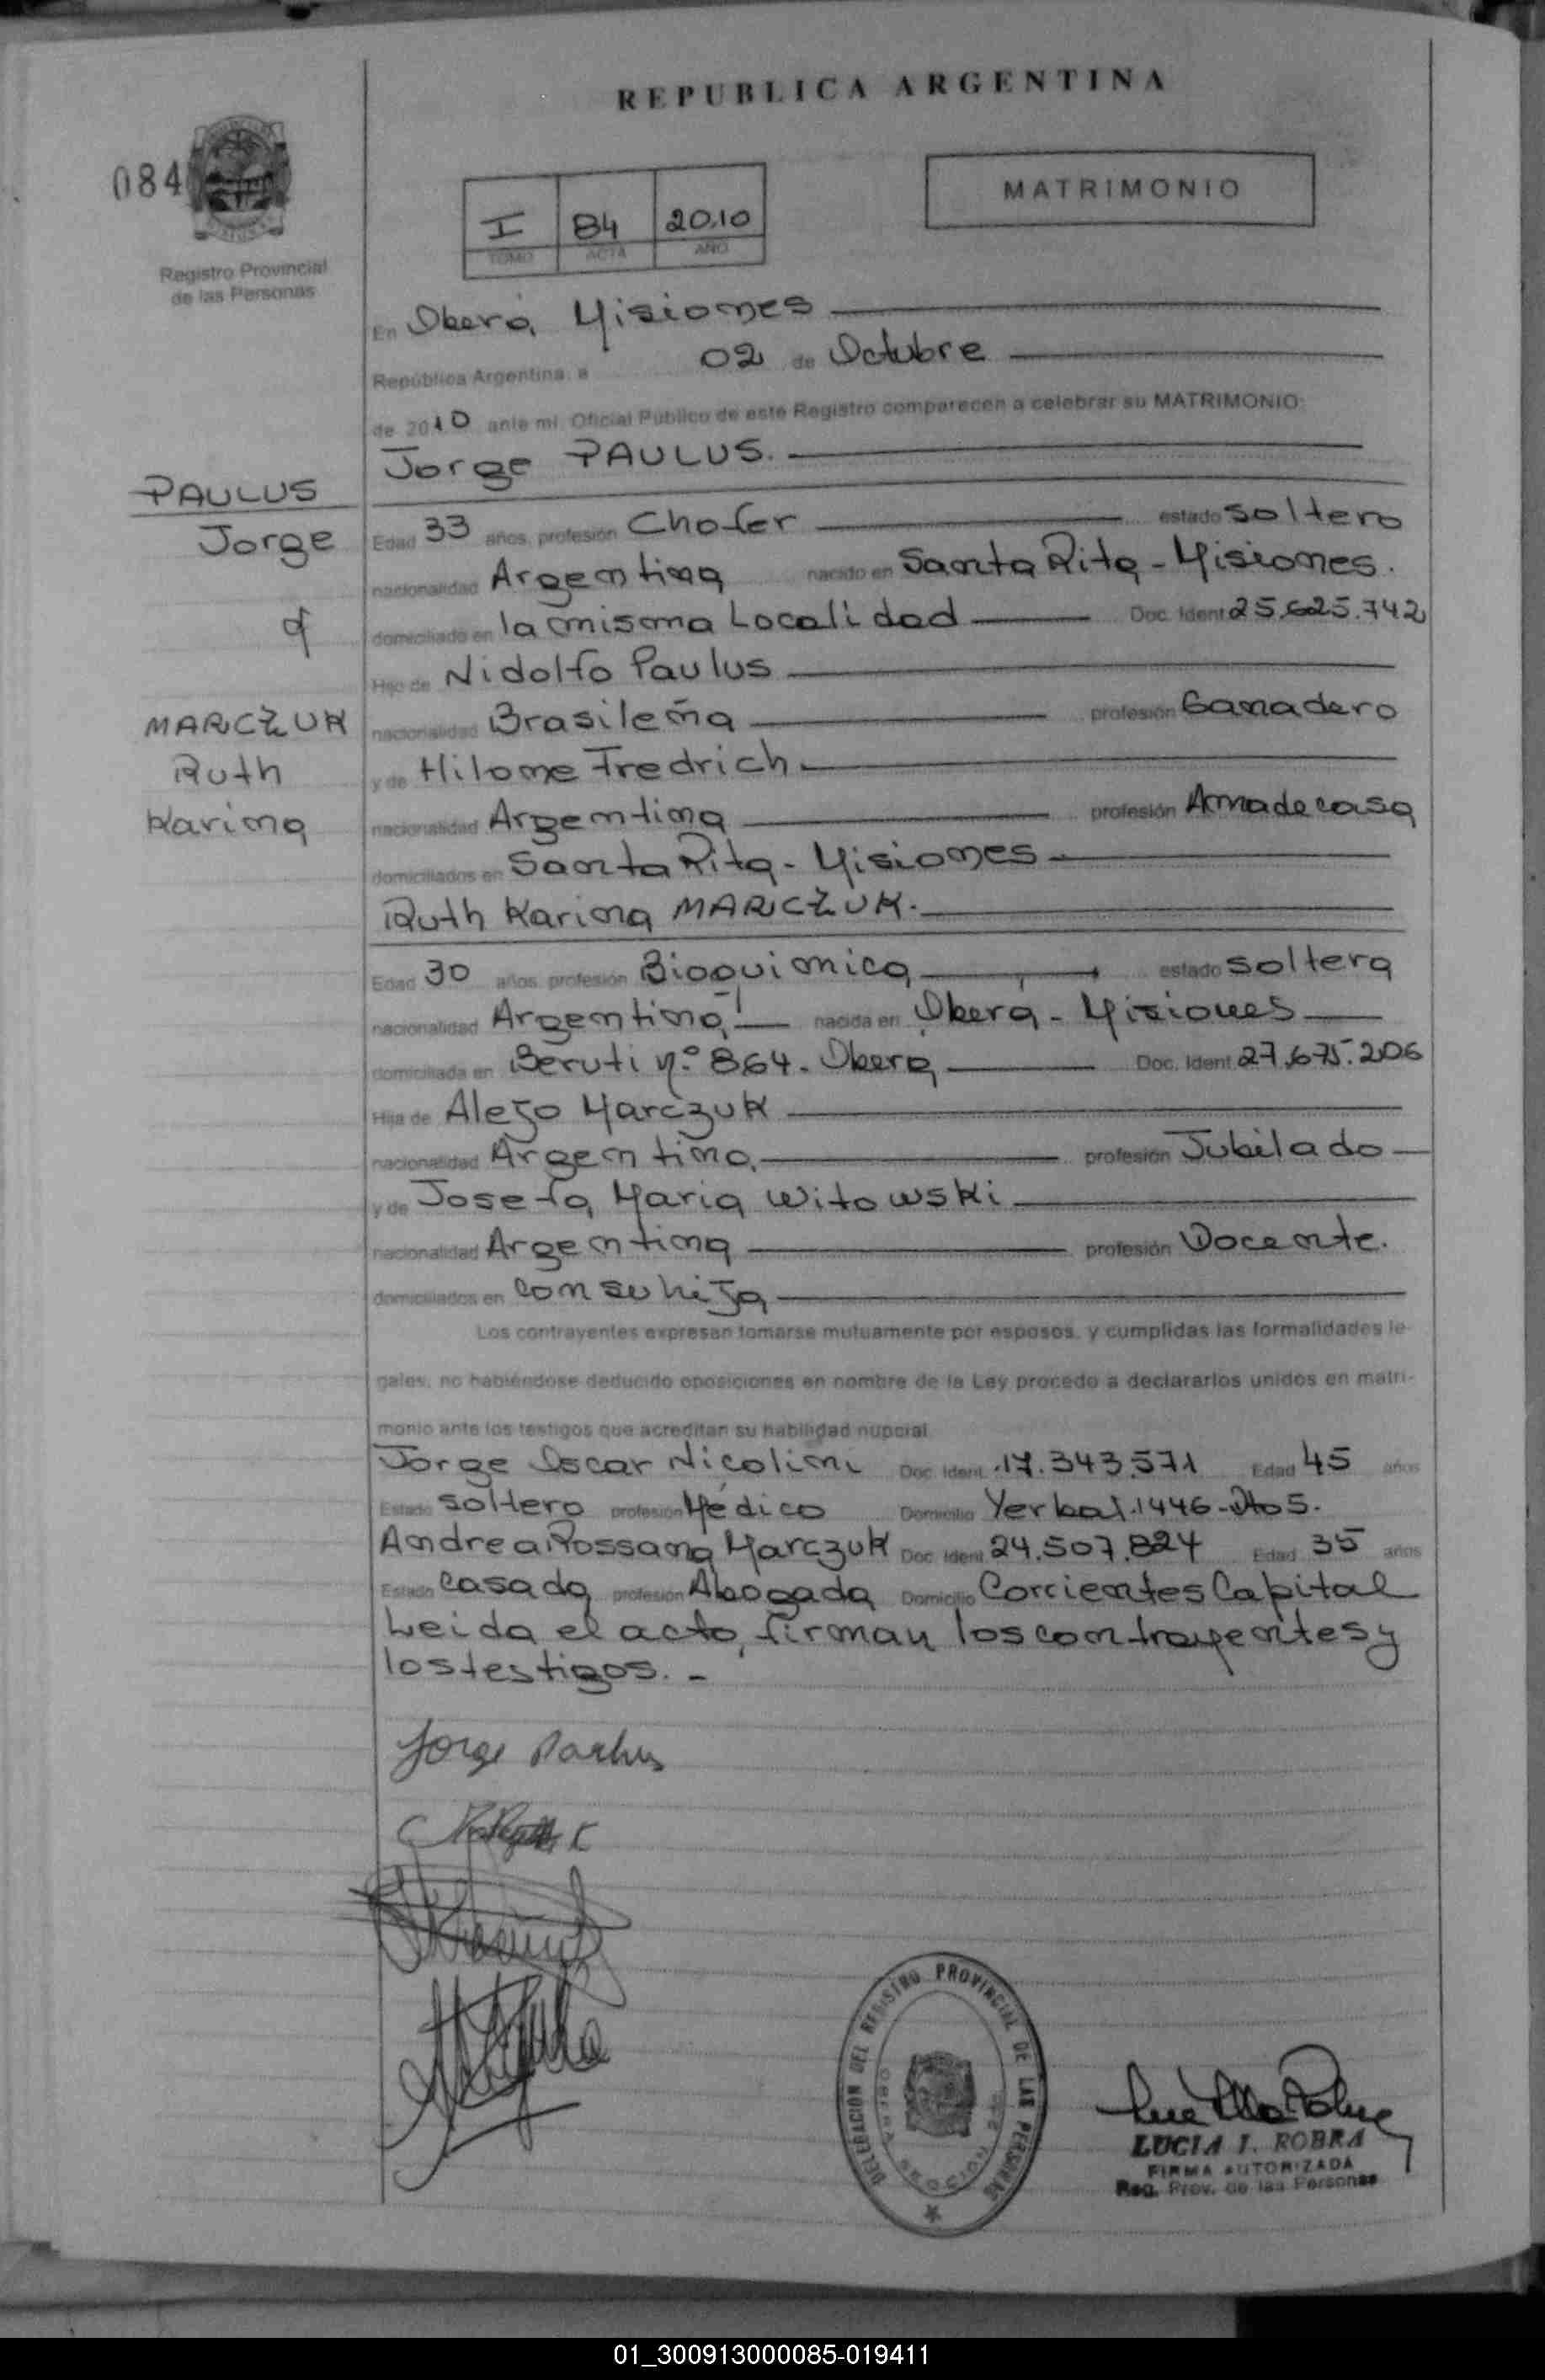 REPUBLICA ARGENTINA
084
MATRIMONIO
I 84 2010
TOMO ACTA AÑO
Registro Provincial
de las Personas
En Oberá Misiones
República Argentina, a 02 de Octubre
de 2010 ante mi, Oficial Público de este Registro comparecen a celebrar su MATRIMONIO:
Jorge PAULUS.
PAULUS
Jorge
Edad 33 años, profesión Chofer estado soltero
nacionalidad Argentina nacido en Santa Rita - Misiones.
domiciliado en la misma Localidad Doc. Ident 25.625.742
Hijo de Nidolfo Paulus
MARCZUK
Ruth
Karina
nacionalidad Brasileña profesión Ganadero
y de Hilone Fredrich
nacionalidad Argentina profesión Ama de casa
domiciliados en Santa Rita - Misiones
Ruth Karina MARCZUK.
Edad 30 años, profesión Bioquimica estado soltera
nacionalidad Argentina nacida en Oberá - Misiones
domiciliada en Beruti nº 864. Oberá Doc. Ident 27.675.206
Hija de Alejo Marczuk
nacionalidad Argentina profesión Jubilado
y de Josefa Maria Witowski
nacionalidad Argentina profesión Docente.
domiciliados en con su hija
Los contrayentes expresan tomarse mutuamente por esposos, y cumplidas las formalidades le-
gales, no habiéndose deducido oposiciones en nombre de la Ley procedo a declararlos unidos en matri-
monio ante los testigos que acreditan su habilidad nupcial
Jorge Oscar Nicolini Doc. Ident. 17.343.571 Edad 45 años
Estado soltero profesión Médico Domicilio Yerbal 1446-Dto 5.
Andrea Rossana Marczuk Doc. Ident 24.507.824 Edad 35 años
Estado casada profesión Abogada Domicilio Corrientes Capital
Leida el acta, firman los contrayentes y
los testigos. -
Jorge Paulus
DELEGACION DEL REGISTRO PROVINCIAL DE LAS PERSONAS
LUCIA I. ROBRA
FIRMA AUTORIZADA
Reg. Prov. de las Personas
01_300913000085-019411